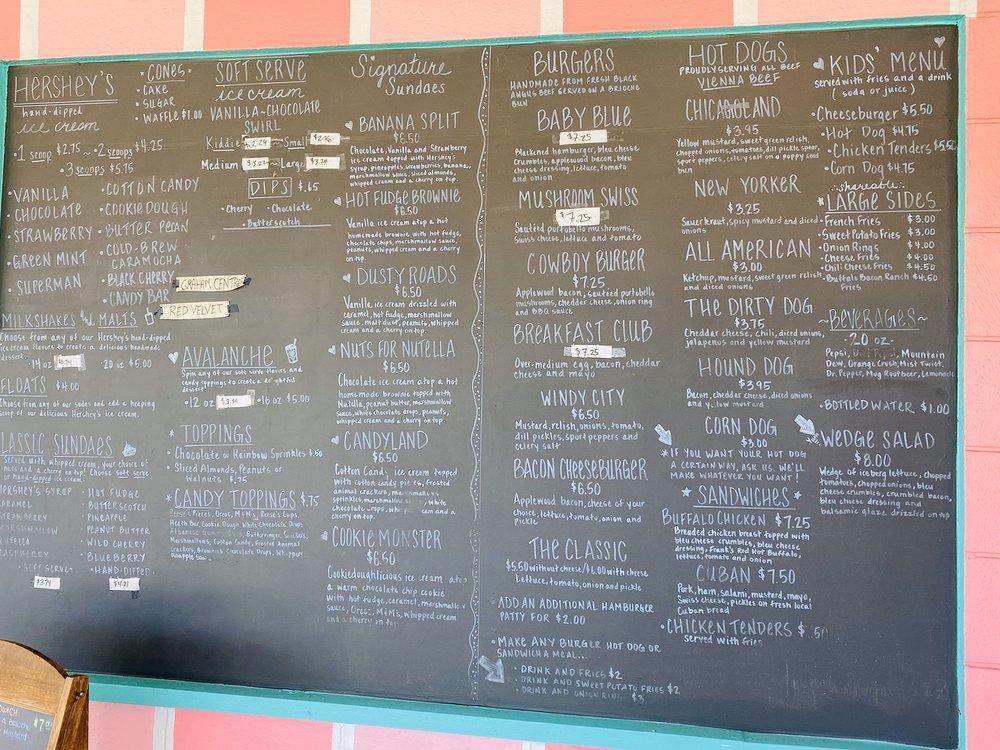 HERSHEY'S
hand-dipped
ice cream
•1 scoop $2.75 ~ •2 scoops $4.25
•3 scoops $5.75
•VANILLA
•CHOCOLATE
•STRAWBERRY
•GREEN MINT
•SUPERMAN
•COTTON CANDY
•COOKIE DOUGH
•BUTTER PECAN
•COLD-BREW
CARAMOCHA
•BLACK CHERRY
•CANDY BAR
GRAHAM CENTRAL
RED VELVET
"CONES"
•CAKE
•SUGAR
•WAFFLE $1.00
MILKSHAKES and MALTS
Choose from any of our Hershey's hand-dipped
ice cream flavors to create a delicious handmade
dessert.
•14 oz •20 oz $5.00
FLOATS $4.00
Choose from any of our sodas and add a heaping
scoop of our delicious Hershey's ice cream.
CLASSIC SUNDAES
Served with whipped cream, your choice of
nuts and a cherry on top! Choose soft serve
or hand-dipped ice cream.
HERSHEY'S SYRUP
CARAMEL
STRAWBERRY
MARSHMALLOW
NUTELLA
RASPBERRY
•HOT FUDGE
•BUTTERSCOTCH
•PINEAPPLE
•PEANUT BUTTER
•WILD CHERRY
•BLUEBERRY
•SOFT SERVE•
$3.74
•HAND-DIPPED•
$4.21
SOFT SERVE
ice cream
VANILLA~CHOCOLATE
SWIRL
Kiddie $2.24 ~ Small $2.76
Medium ~ Large $3.74
DIPS $.65
•Cherry •Chocolate
•Butterscotch
AVALANCHE
Spin any of our soft serve flavors and
candy toppings to create a delightful
dessert!
•12 oz $3.74 •16 oz $5.00
TOPPINGS
•Chocolate or Rainbow Sprinkles $.50
•Sliced Almonds, Peanuts or
Walnuts $.75
*CANDY TOPPINGS $.75
Reese's Pieces, Oreos, M+M'S, Reese's Cups,
Heath Bar, Cookie Dough White Chocolate Drops
Albanese Gummi Bears, Butterfinger, Snickers,
Marshmallows, Cotton Candy, Frosted Animal
Crackers, Brownies, Chocolate Drops, Whoppers
Signature
Sundaes
BANANA SPLIT
$6.50
Chocolate, Vanilla and Strawberry
ice cream topped with Hershey's
syrup, pineapple, strawberries, banana,
marshmallow sauce, sliced almonds,
whipped cream and a cherry on top.
HOT FUDGE BROWNIE
$6.50
Vanilla ice cream atop a hot
homemade brownie with hot fudge,
chocolate chips, marshmallow sauce,
peanuts, whipped cream and a cherry
on top.
DUSTY ROADS
$6.50
Vanilla ice cream drizzled with
caramel, hot fudge, marshmallow
sauce, malt dust, peanuts, whipped
cream and a cherry on top.
NUTS FOR NUTELLA
$6.50
Chocolate ice cream atop a hot
homemade brownie topped with
Nutella, peanut butter, marshmallow
sauce, white chocolate drops, peanuts,
whipped cream and a cherry on top.
CANDYLAND
$6.50
Cotton Candy ice cream topped
with cotton candy pieces, frosted
animal crackers, marshmallows
sprinkles, marshmallow
chocolate drops, whipped cream and a
cherry on top.
COOKIE MONSTER
$6.50
Cookiedoughlicious ice cream atop
a warm chocolate chip cookie
with hot fudge, caramel, marshmallow
sauce, Oreos, M+M's, whipped cream
and a cherry on top.
BURGERS
HANDMADE FROM FRESH BLACK
ANGUS BEEF SERVED ON A BRIOCHE
BUN
BABY BLUE
$7.25
Blackened hamburger, bleu cheese
crumbles, applewood bacon, bleu
cheese dressing, lettuce, tomato
and onion
MUSHROOM SWISS
$7.25
Sautéed portobello mushrooms,
swiss cheese, lettuce and tomato
COWBOY BURGER
$7.25
Applewood bacon, sautéed portobello
mushrooms, cheddar cheese, onion ring
and BBQ sauce
BREAKFAST CLUB
$7.25
Over-medium egg, bacon, cheddar
cheese and mayo
WINDY CITY
$6.50
Mustard, relish, onions, tomato,
dill pickles, sport peppers and
celery salt
BACON CHEESEBURGER
$6.50
Applewood bacon, cheese of your
choice, lettuce, tomato, onion and
pickle
THE CLASSIC
$5.50 without cheese/$6.00 with cheese
Lettuce, tomato, onion and pickle
ADD AN ADDITIONAL HAMBURGER
PATTY FOR $2.00
•MAKE ANY BURGER HOT DOG OR
SANDWICH A MEAL...
•DRINK AND FRIES $2
•DRINK AND SWEET POTATO FRIES $2
•DRINK AND ONION RINGS $3
HOT DOGS
PROUDLY SERVING ALL BEEF
VIENNA BEEF
CHICAGOLAND
$3.95
Yellow mustard, sweet green relish,
chopped onions, tomatoes, dill pickle spear,
sport peppers, celery salt on a poppy seed
bun
NEW YORKER
$3.25
Sauerkraut, spicy mustard and diced
onions
ALL AMERICAN
$3.00
Ketchup, mustard, sweet green relish,
and diced onions
THE DIRTY DOG
$3.75
Cheddar cheese, chili, diced onions,
jalapenos and yellow mustard
HOUND DOG
$3.95
Bacon, cheddar cheese, diced onions
and yellow mustard
CORN DOG
$3.00
*IF YOU WANT YOUR HOT DOG
A CERTAIN WAY, ASK US. WE'LL
MAKE WHATEVER YOU WANT!
*SANDWICHES*
BUFFALO CHICKEN $7.25
Breaded chicken breast topped with
bleu cheese crumbles, bleu cheese
dressing, Frank's Red Hot Buffalo,
lettuce, tomato and onion
CUBAN $7.50
Pork, ham, salami, mustard, mayo,
Swiss cheese, pickles on fresh local
Cuban bread
•CHICKEN TENDERS $ .50
Served with fries
KIDS' MENU
served with fries and a drink
(soda or juice)
•Cheeseburger $5.50
•Hot Dog $4.75
•Chicken Tenders $5.50
•Corn Dog $4.75
shareable
*LARGE SIDES
•French Fries $3.00
•Sweet Potato Fries $3.00
•Onion Rings $4.00
•Cheese Fries $4.00
•Chili Cheese Fries $4.50
•Buffalo Bacon Ranch $4.50
Fries
~BEVERAGES~
-20 oz-
Pepsi, Diet Pepsi, Mountain
Dew, Orange Crush, Mist Twist,
Dr. Pepper, Mug Rootbeer, Lemonade
•BOTTLED WATER $1.00
WEDGE SALAD
$8.00
Wedge of iceberg lettuce, chopped
tomatoes, chopped onions, bleu
cheese crumbles, crumbled bacon,
bleu cheese dressing and
balsamic glaze drizzled on top